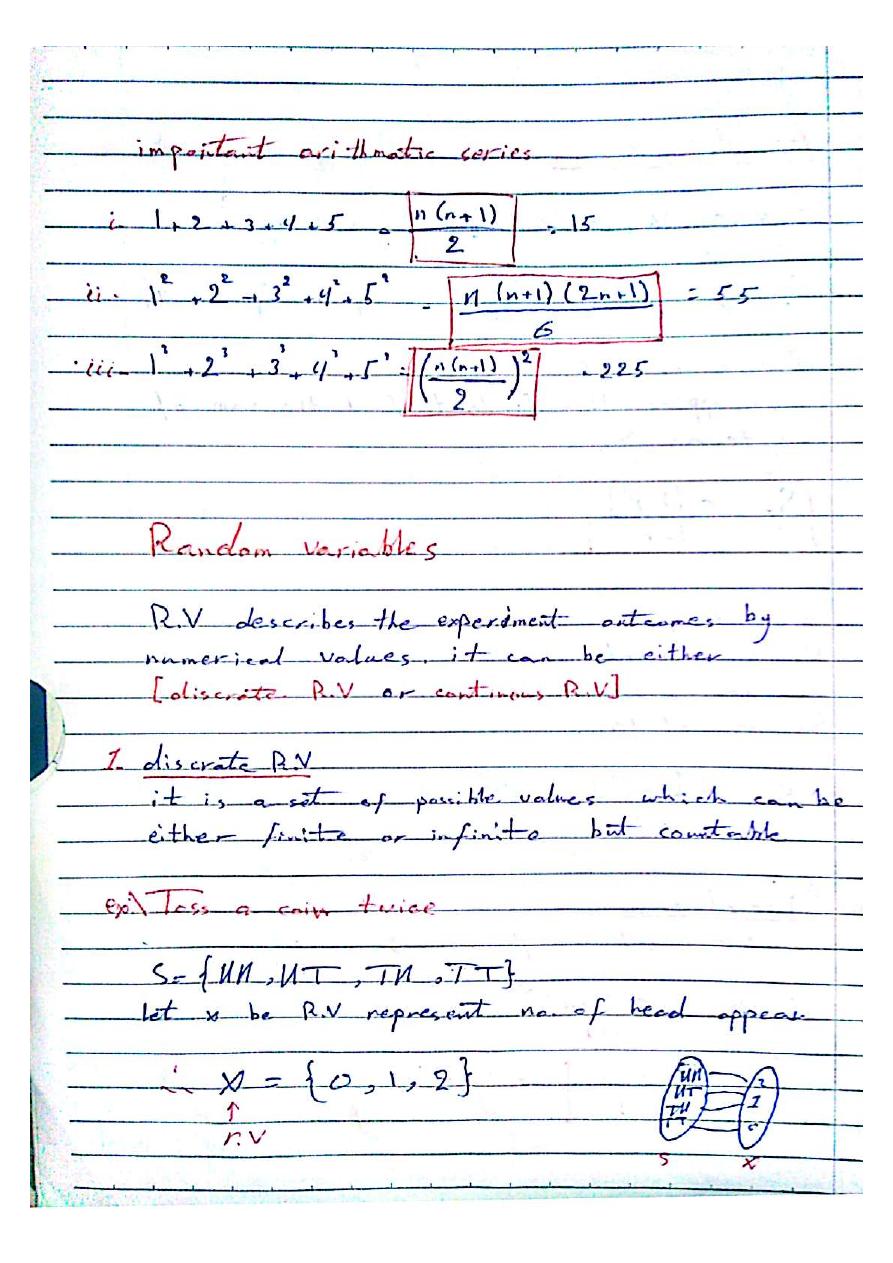 important arithmatic series
i- 1+2+3+4+5 = n(n+1)/2 = 15
ii- 1² + 2² + 3² + 4² + 5² = n(n+1)(2n+1)/6 = 55
iii- 1³ + 2³ + 3³ + 4³ + 5³ = (n(n+1)/2)² = 225
Random variables
R.V describes the experiment outcomes by
numerical values. it can be either
[discrete R.V or continous R.V]
1- discrate R.V
it is a set of possible values which can be
either finite or infinite but countable
ex:\ Toss a coin twice
S = {HH, HT, TH, TT}
Let x be R.V represent no. of head appear
∴ x = {0, 1, 2}
↑
r.V
HH 2
HT 1
TH
TT 0
S X